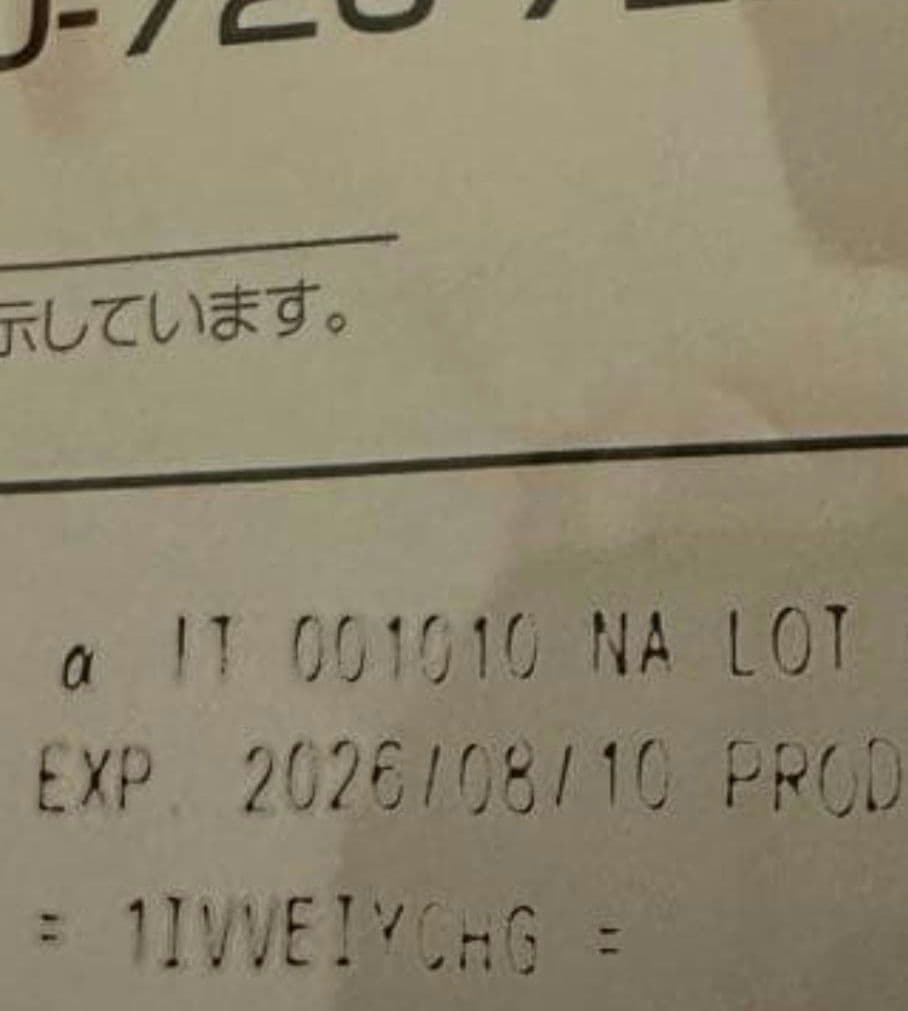 示しています。
a IT 001010 NA LOT
EXP. 2026/08/10 PROD
= 1IVVEIYCHG =